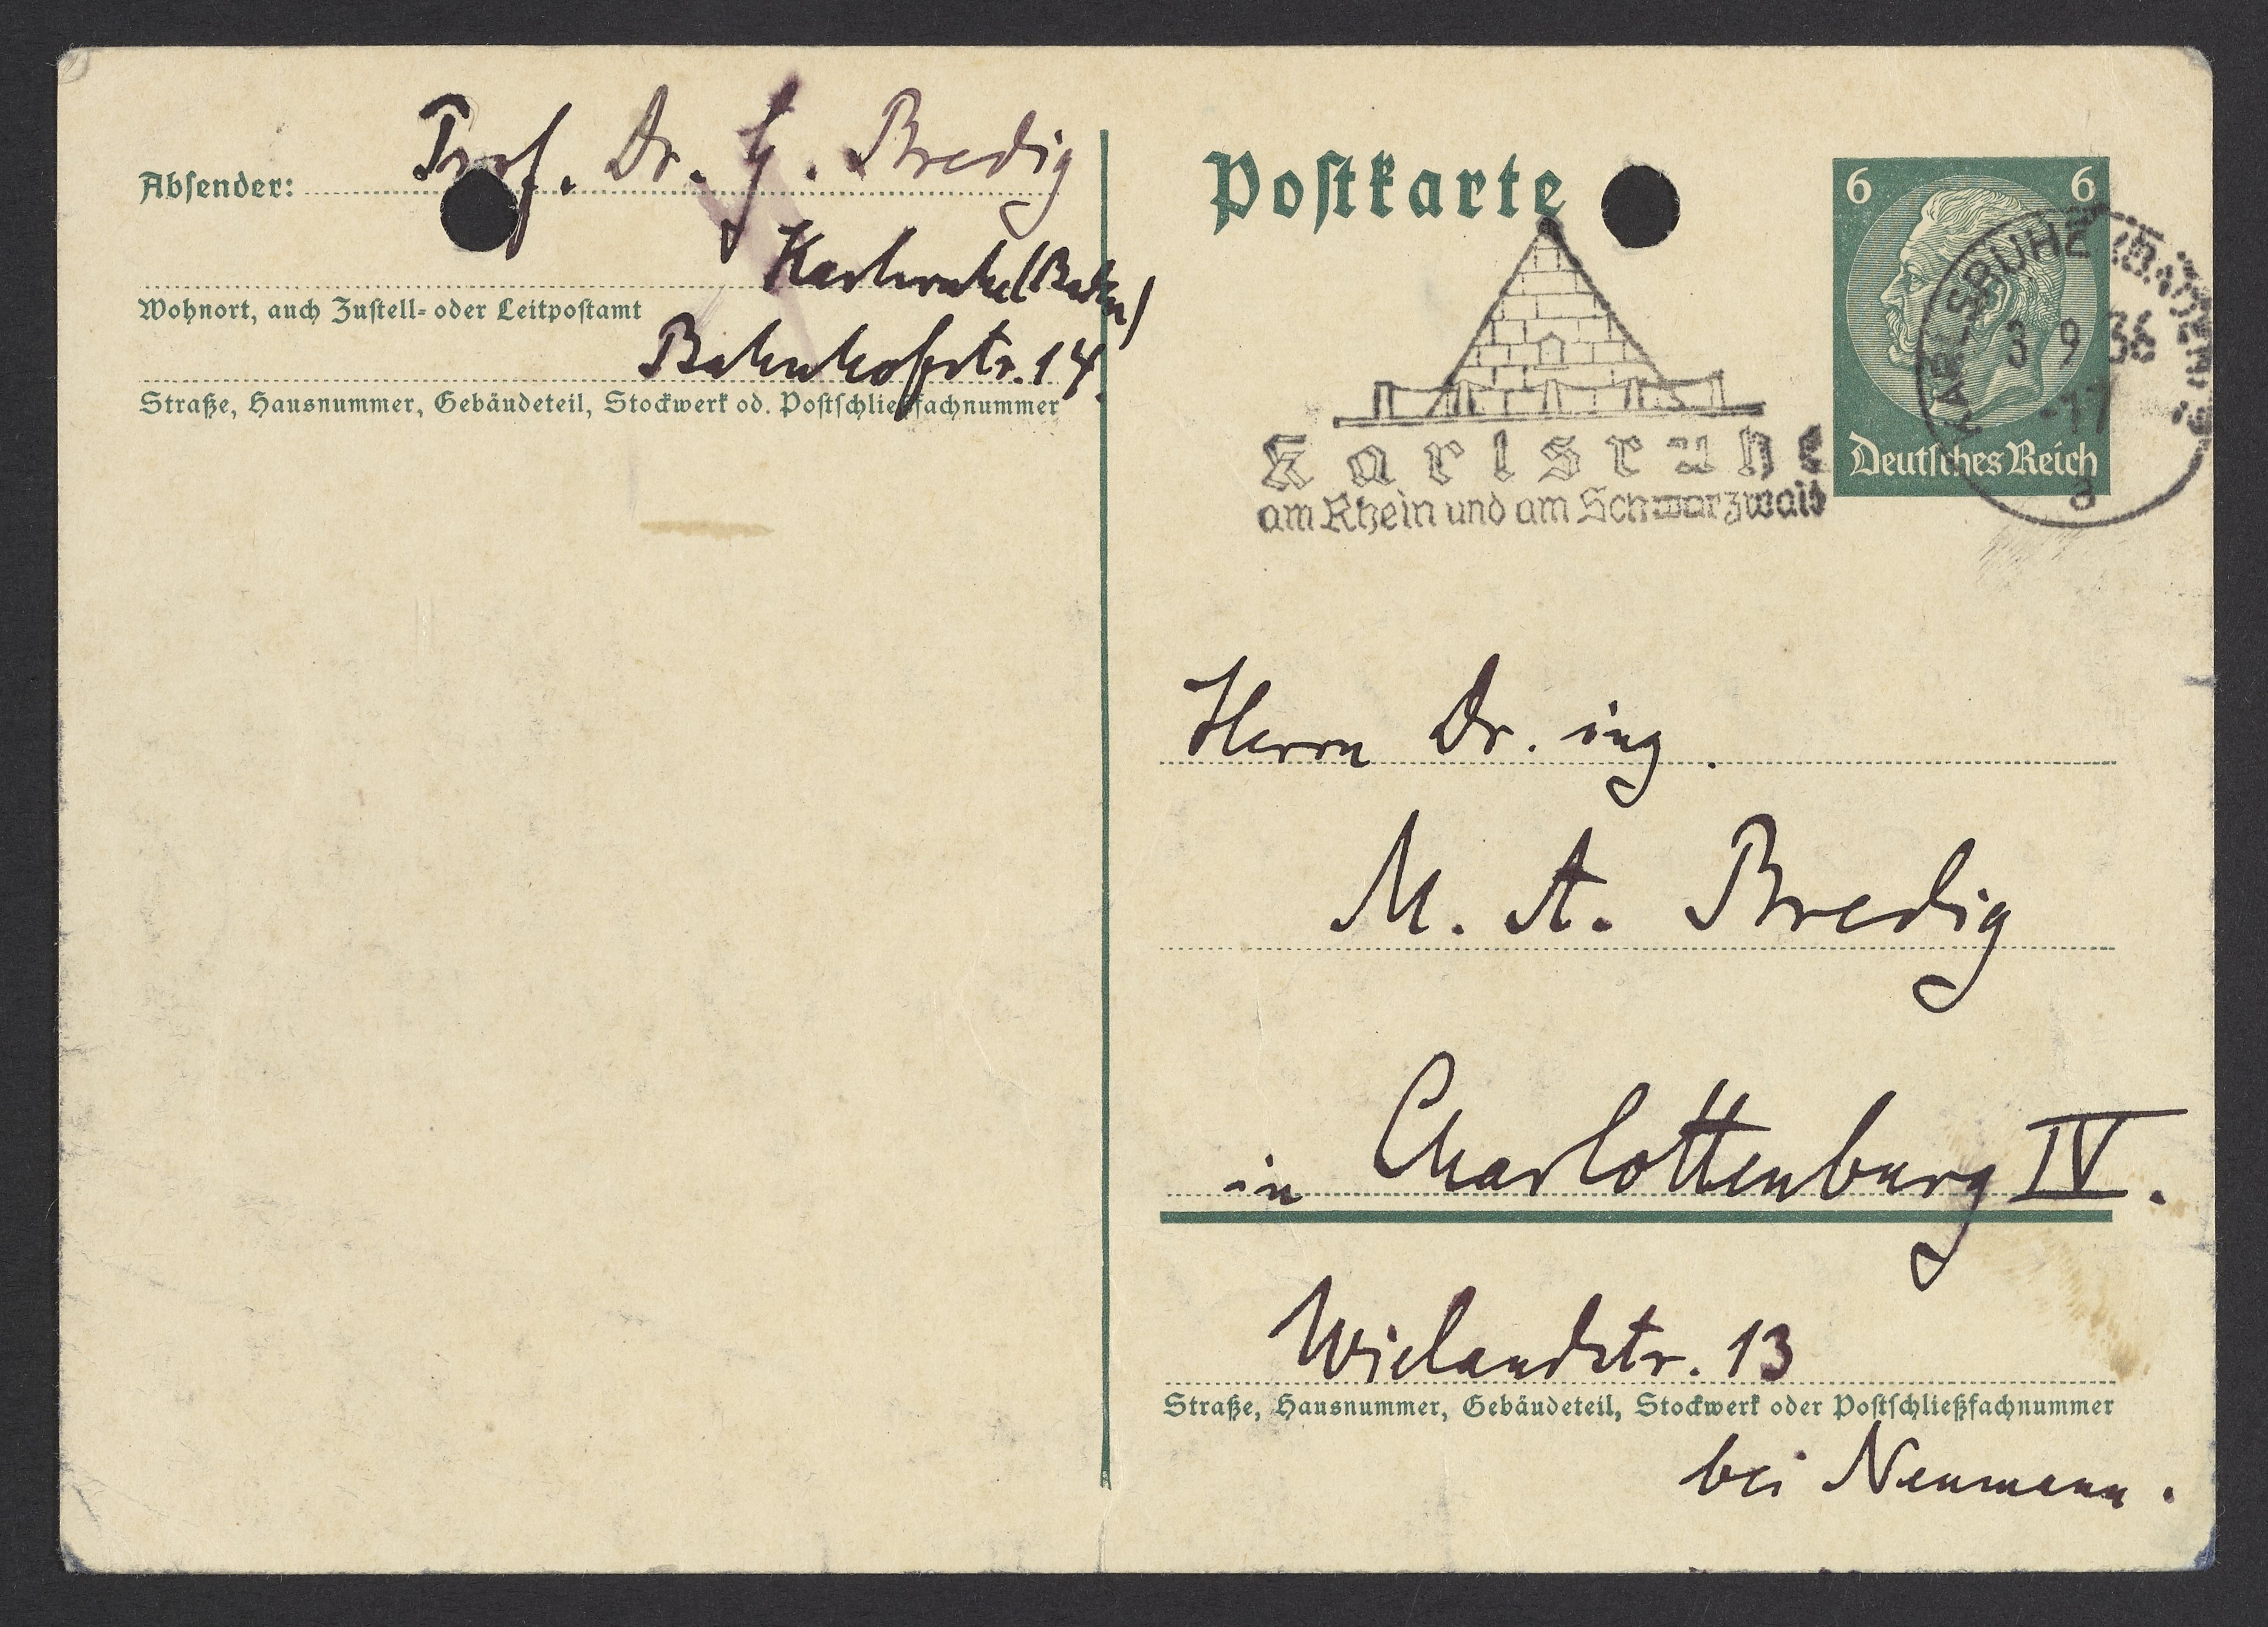 Absender: Prof. Dr. G. Bredig
Karlsruhe (Baden)
Wohnort, auch Zustell- oder Leitpostamt
Bahnhofstr. 14.
Straße, Hausnummer, Gebäudeteil, Stockwerk od. Postschließfachnummer
Postkarte
6 6
Deutsches Reich
KARLSRUHE
3 9 36
-17
a
Karlsruhe
am Rhein und am Schwarzwald
Herrn Dr. ing.
M. A. Bredig
in Charlottenburg IV.
Wielandstr. 13
Straße, Hausnummer, Gebäudeteil, Stockwerk oder Postschließfachnummer
bei Neumann.